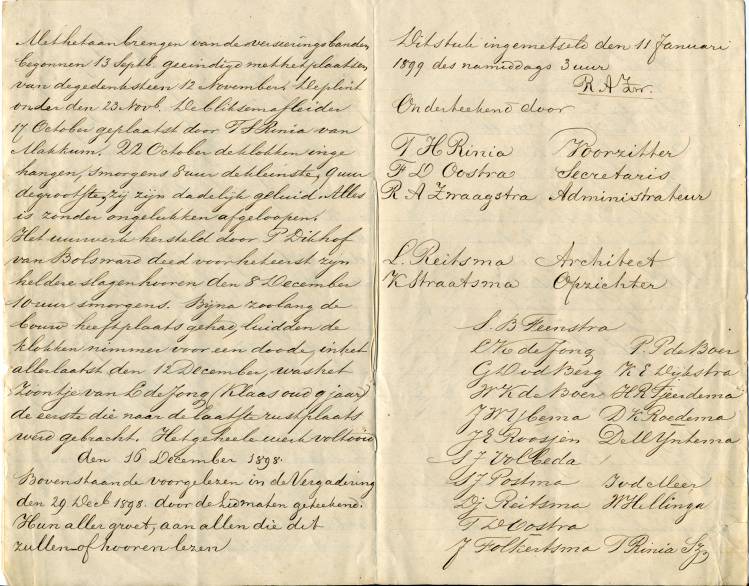 Met het aanbrengen van de versieringsbanden
begonnen 13 Septb. geeindigd met het plaatsen
van de gedenksteen 12 November. De plint
onder den 23 Novb. De bliksemafleider
17 October geplaatst door T S Rinia van
Makkum. 22 October de klokken inge
hangen, smorgens 8 uur de kleinste, 9 uur
de grootste, zij zijn dadelijk geluid. Alles
is zonder ongelukken afgeloopen.
Het uurwerk hersteld door P Dikhof
van Bolsward deed voor het eerst zijn
heldere slagen hooren den 8 December
10 uur smorgens. Bijna zoolang de
bouw heeft plaats gehad, luidden de
klokken nimmer voor een doode, in het
allerlaatst den 12 December, was het
Zoontje van L de Jong (Klaas oud 9 jaar)
de eerste die naar de laatste rustplaats
werd gebracht. Het geheele werk voltooid
den 16 December 1898.
Bovenstaande voorgelezen in de Vergadering
den 29 Decb 1898. door de Ledmaten geteekend.
Hun aller groet, aan allen die dit
zullen of hooren lezen
Dit stuk ingemetseld den 11 Januari
1899 des namiddags 3 uur
R A Zw.
Onderteekend door
T H Rinia Voorzitter
F D Oostra Secretaris
R A Zwaagstra Administrateur
L. Reitsma Architect
K Straatsma Opzichter
S. B Feenstra
L K de Jong P. P de Boer
G D v d Berg K E Dijkstra
W K de Boer H R Tjeerdema
J W Ybema D K Roedema
J E Roosjen De M IJntema
S J Volbeda
S J Postma J v d Meer
Dj Reitsma W Hellinga
G D Oostra
J Folkertsma T Rinia Sz